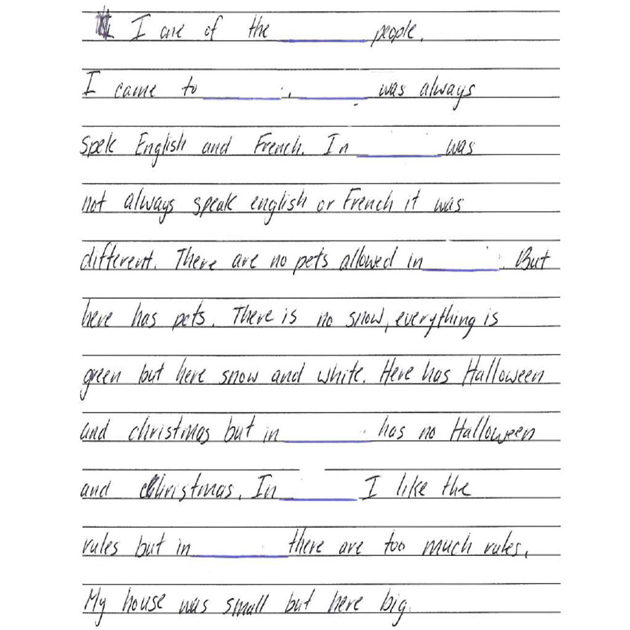 I are of the ________ people.
I came to ________. ________ was always
spek English and French. In ________ was
not always speak english or French it was
different. There are no pets allowed in ________. But
here has pets. There is no snow, everything is
green but here snow and white. Here has Halloween
and christmas but in ________ has no Halloween
and christmas. In ________ I like the
rules but in ________ there are too much rules.
My house was small but here big.